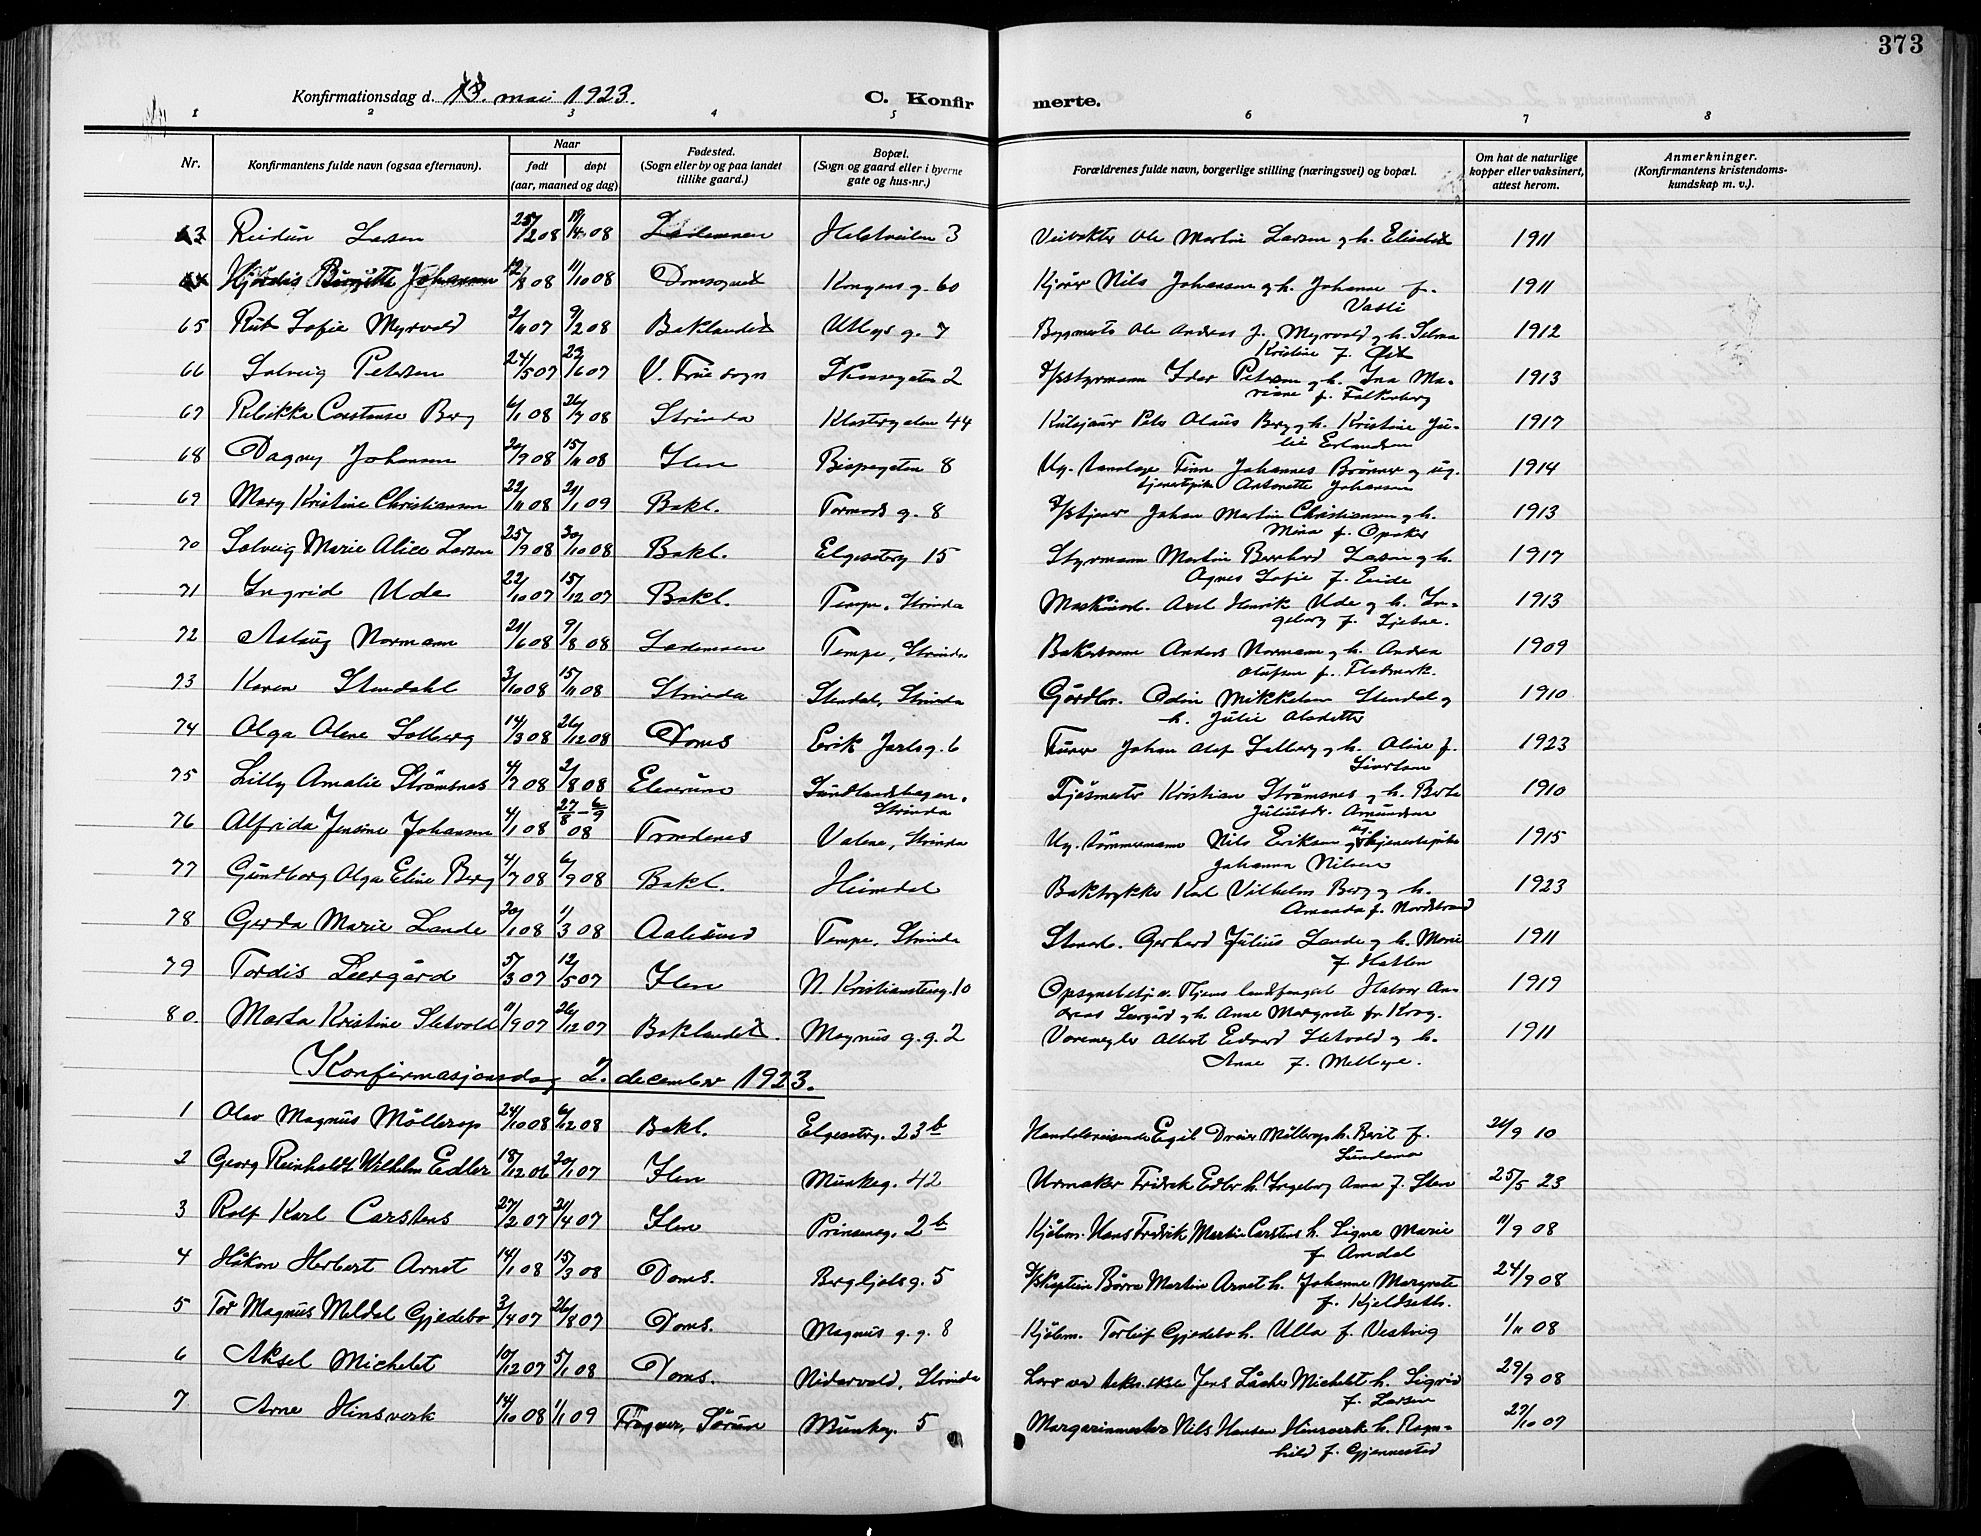 373
Konfirmationsdag d. 13. mai 1923.
C. Konfirmerte.
1 2 3 4 5 6 7 8
Nr. Konfirmantens fulde navn (ogsaa efternavn). Naar født døpt (aar, maaned og dag) Fødested. (Sogn eller by og paa landet tillike gaard.) Bopæl. (Sogn og gaard eller i byerne gate og hus-nr.) Forældrenes fulde navn, borgerlige stilling (næringsvei) og bopæl. Om hat de naturlige kopper eller vaksinert, attest herom. Anmerkninger. (Konfirmantens kristendoms-kundskap m. v.).
63 Reidun Larsen 25/2 08 Lademoen 3 Ole Martin Larsen g h. 1911
Hjördis Birgitte Johansen 12/8 08 11/10 08 Domsognet Kongens g. 60 Kjører Nils Johansen g h. Johanne f. 1911
65 Rut Sofie Myrvold 2/11 07 9/2 08 Baklandet g. 7 Ole Andreas J. Myrvold g h. Selma 1912
Kristine f.
66 Solveig Petersen 24/5 07 23/6 07 V. Frue sogn 2 D/S styrmann Idar Petersen g h. Ina Ma-
riane f. Falkenberg 1913
67 Rebekka Constanse Berg 6/1 08 26/7 08 Strinda Klostergaten 44 Peter Olaus Berg g h. Kristine Ju-
lie Erlandsen 1917
68 Dagny Johansen 20/9 08 15/11 08 Ilen Bispegaten 8 Ug. Finn Johannes Brönner og ug.
tjenestepike Antonette Johansen 1914
69 Mary Kristine Christiansen 22/11 08 21/1 09 Bakl. Tormods g. 8 Johan Martin Christiansen g h.
Mina f. Opaker 1913
70 Solveig Marie Alice Larsen 25/9 08 30/10 08 Bakl. Elgesæterg 15 Styrmann Martin Bernhard Larsen g h.
Agnes Sofie f. Eide 1917
71 Ingrid Ude 22/10 07 15/12 07 Bakl. Tempe, Strinda Axel Henrik Ude g h. In-
geborg f. 1913
72 Aslaug Normann 21/6 08 9/8 08 Lademoen Tempe, Strinda Anders Normann g h. Andrea
Olufine f. Fladmark. 1909
73 Karen Stendahl 3/10 08 15/11 08 Strinda Stendal, Strinda Odin Mikkelsen Stendal g
h. Julie 1910
74 Olga Olene Solberg 14/3 08 26/12 08 Doms Erik Jarlsg. 6 Johan Olaf Solberg g h. Oline f.
Sivertsen 1923
75 Lilly Amalie Strömsnes 4/7 08 2/8 08 Elverum Sundlandshagen,
Strinda Kristian Strömsnes g h. Berte
Juliusdr. Amundsen 1910
76 Alfrida Jensine Johansen 4/1 08 27/8 – 6/9 08 Trondenes Valene, Strinda Ug. tömmermann Nils Eriksen og ug. tjenestepike
Johanna Nilsen 1915
77 Gundborg Olga Eline Berg 4/7 08 6/9 08 Bakl. Heimdal Boktrykker Karl Vilhelm Berg g h.
Amanda f. Nordstrand 1923
78 Gerda Marie Lande 20/1 08 1/3 08 Aalesund Tempe, Strinda Gerhard Julius Lande g h. Marie
f. Hatlen 1911
79 Tordis Leergård 5/3 07 12/5 07 Ilen N. Kristianstensg. 10 Halvor An-
dreas Leergård g h. Anne Margrete f. Krog. 1919
80 Marta Kristine Sletvold 11/9 07 26/12 07 Baklandet. Magnus g. g. 2 Albert Edvard Sletvold g h.
Anne f. Melbye. 1911
Konfirmasjonsdag 2. december 1923.
1 Olav Magnus Möllerop 24/10 08 6/12 08 Bakl. Elgesæterg. 23 b Handelsreisende Egil Dreier Möllerop h. Berit f.
Sundsmo 26/9 10
2 Georg Reinholdt Wilhelm Edler 18/12 06 20/1 07 Ilen Munkeg. 42 Urmaker Fridrik Edler h. Ingeborg Anna f. Sten 25/5 23
3 Rolf Karl Carstens 27/2 07 21/4 07 Ilen Prinsensg. 2 b Kjöbm. Hans Fridrik Martin Carstens h. Signe Marie
f. Amdal 11/9 08
4 Håkon Herbert Arnet 14/1 08 15/3 08 Doms. Bergljotsg. 5 D/S kaptein Börre Martin Arnet h. Johanne Margrete
f. Kjeldseth. 24/9 08
5 Tor Magnus Meldal Gjedebo 3/4 07 26/8 07 Doms. Magnus g. g. 8 Kjöbm. Torleif Gjedebo h. Ulla f. Vestvig 1/11 08
6 Aksel Michelet 10/12 07 5/1 08 Doms. Nidarvold, Strinda Lærer ved tekn. skole Jens Michelet h. Sigrid
f. Larsen 29/9 08
7 Arne Hinsverk 14/10 08 1/1 09 Frogner, Sörum Munkeg. 5 Margarinmester Nils Hansen Hinsverk h. Ragn-
hild f. Gjennestad 27/10 07